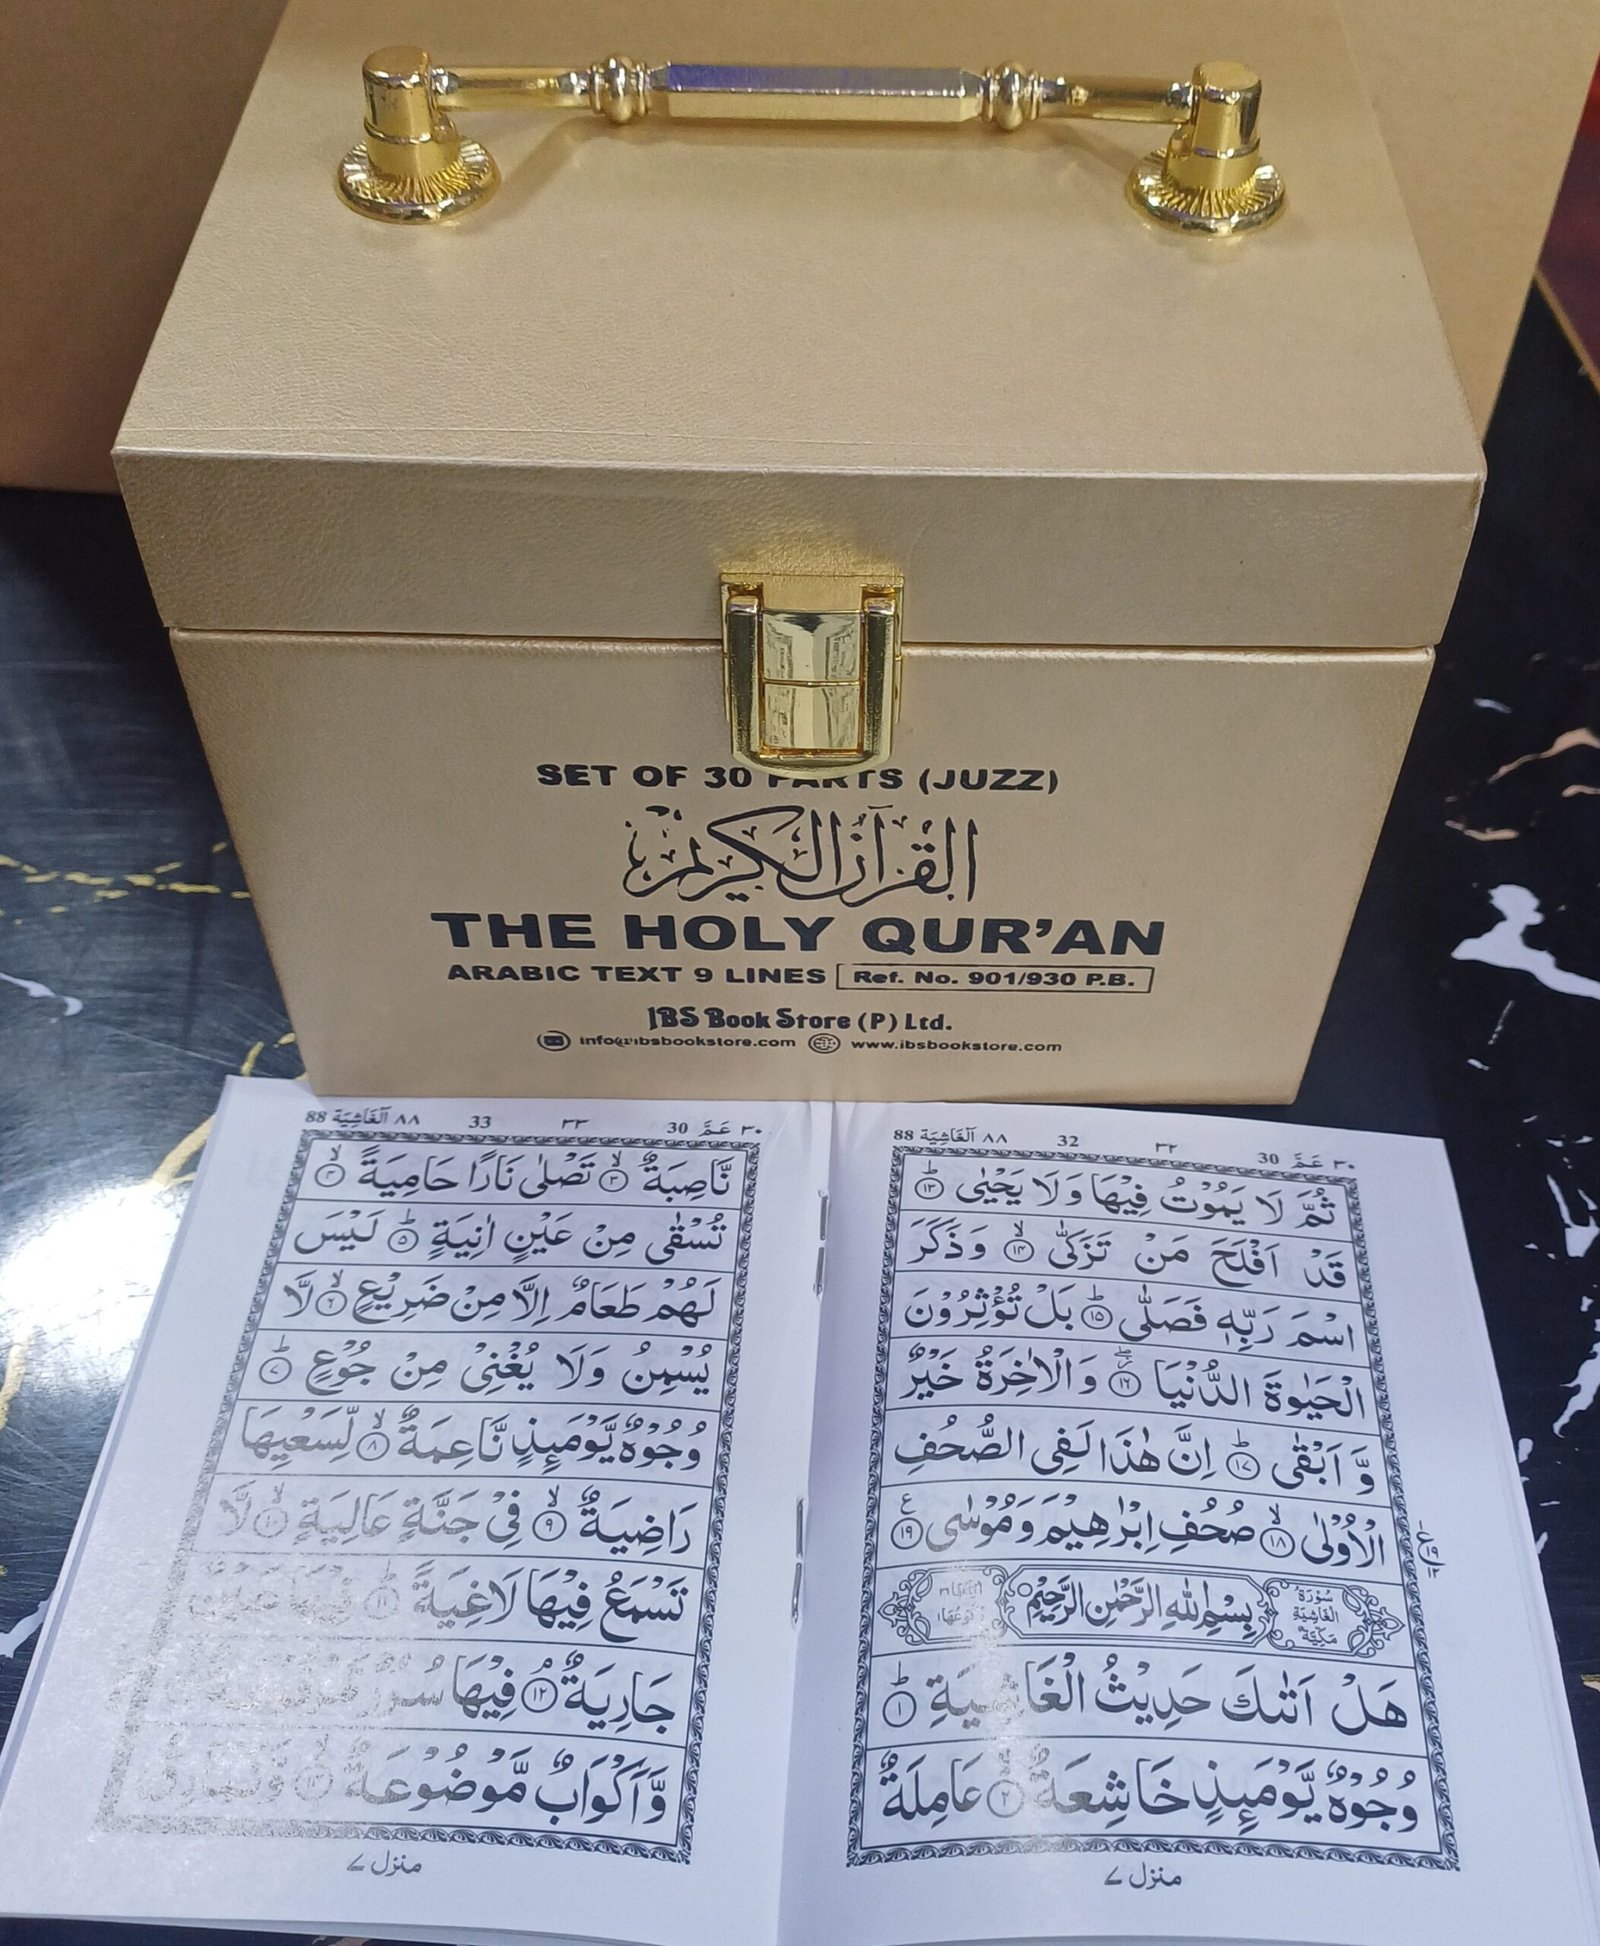 SET OF 30 PARTS (JUZZ)
القرآن الكريم
THE HOLY QUR'AN
ARABIC TEXT 9 LINES Ref. No. 901/930 P.B.
IBS Book Store (P) Ltd.
info@ibsbookstore.com www.ibsbookstore.com
٣٠ عَمَّ 30 ٣٢ 32 ٨٨ اَلْغَاشِيَة 88
ثُمَّ لَا يَمُوْتُ فِيْهَا وَلَا يَحْيٰى ۱۳
قَدْ اَفْلَحَ مَنْ تَزَكّٰى ۱۴ وَذَكَرَ
اسْمَ رَبِّهٖ فَصَلّٰى ۱۵ بَلْ تُؤْثِرُوْنَ
الْحَيٰوةَ الدُّنْيَا ۱۶ وَالْاٰخِرَةُ خَيْرٌ
وَّ اَبْقٰى ۱۷ اِنَّ هٰذَا لَفِى الصُّحُفِ
الْاُوْلٰى ۱۸ صُحُفِ اِبْرٰهِيْمَ وَمُوْسٰى ۱۹
سُوْرَةُ الْغَاشِيَةِ مَكِّيَّةٌ بِسْمِ اللّٰهِ الرَّحْمٰنِ الرَّحِيْمِ
هَلْ اَتٰىكَ حَدِيْثُ الْغَاشِيَةِ ۱
وُجُوْهٌ يَّوْمَىِٕذٍ خَاشِعَةٌ ۲ عَامِلَةٌ
منزل ۷
٣٠ عَمَّ 30 ٣٣ 33 ٨٨ اَلْغَاشِيَة 88
نَّاصِبَةٌ ۳ تَصْلٰى نَارًا حَامِيَةً ۴
تُسْقٰى مِنْ عَيْنٍ اٰنِيَةٍ ۵ لَيْسَ
لَهُمْ طَعَامٌ اِلَّا مِنْ ضَرِيْعٍ ۶ لَّا
يُسْمِنُ وَلَا يُغْنِىْ مِنْ جُوْعٍ ۷
وُجُوْهٌ يَّوْمَىِٕذٍ نَّاعِمَةٌ ۸ لِّسَعْيِهَا
رَاضِيَةٌ ۹ فِىْ جَنَّةٍ عَالِيَةٍ ۱۰ لَّا
تَسْمَعُ فِيْهَا لَاغِيَةً ۱۱ فِيْهَا عَيْنٌ
جَارِيَةٌ ۱۲ فِيْهَا سُرُرٌ
وَّاَكْوَابٌ مَّوْضُوْعَةٌ ۱۴
منزل ۷